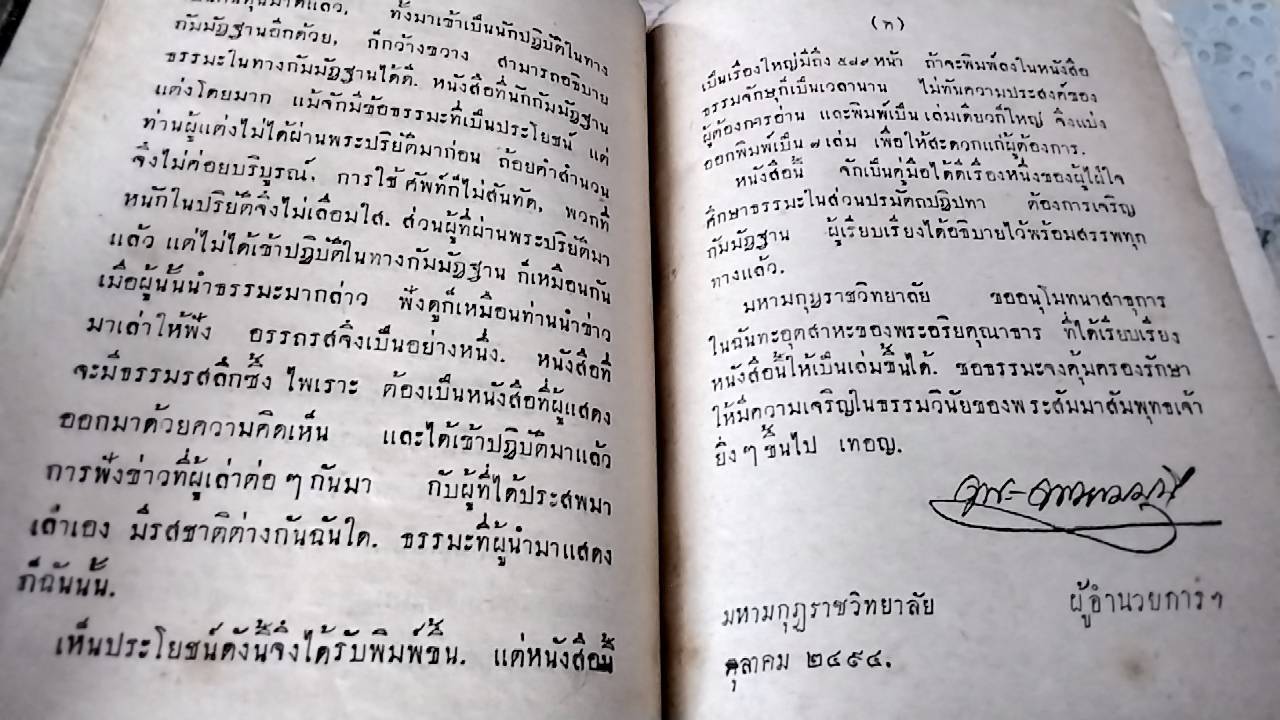 เป็นทุนมาดีแล้ว, ทั้งมาเข้าเป็นนักปฏิบัติในทาง
กัมมัฏฐานอีกด้วย, ก็กว้างขวาง สามารถอธิบาย
ธรรมะในทางกัมมัฏฐานได้ดี. หนังสือที่นักกัมมัฏฐาน
แต่งโดยมาก แม้จักมีข้อธรรมะที่เป็นประโยชน์ แต่
ท่านผู้แต่งไม่ได้ผ่านพระปริยัติมาก่อน ถ้อยคำสำนวน
จึงไม่ค่อยบริบูรณ์, การใช้ศัพท์ก็ไม่สันทัด, พวกที่
หนักในปริยัติจึงไม่เลื่อมใส. ส่วนผู้ที่ผ่านพระปริยัติมา
แล้ว แต่ไม่ได้เข้าปฏิบัติในทางกัมมัฏฐาน ก็เหมือนกัน
เมื่อผู้นั้นนำธรรมะมากล่าว ฟังดูก็เหมือนท่านนำข่าว
มาเล่าให้ฟัง อรรถรสจึงเป็นอย่างหนึ่ง. หนังสือที่
จะมีธรรมรสลึกซึ้ง ไพเราะ ต้องเป็นหนังสือที่ผู้แสดง
ออกมาด้วยความคิดเห็น และได้เข้าปฏิบัติมาแล้ว
การฟังข่าวที่ผู้เล่าต่อ ๆ กันมา กับผู้ที่ได้ประสพมา
เล่าเอง มีรสชาติต่างกันฉันใด. ธรรมะที่ผู้นำมาแสดง
ก็ฉันนั้น.
เห็นประโยชน์ดังนี้จึงได้รับพิมพ์ขึ้น. แต่หนังสือนี้
(ก)
เป็นเรื่องใหญ่มีถึง ๕๘๙ หน้า ถ้าจะพิมพ์ลงในหนังสือ
ธรรมจักษุก็เป็นเวลานาน ไม่ทันความประสงค์ของ
ผู้ต้องการอ่าน และพิมพ์เป็นเล่มเดียวก็ใหญ่ จึงแบ่ง
ออกพิมพ์เป็น ๗ เล่ม เพื่อให้สะดวกแก่ผู้ต้องการ.
หนังสือนี้ จักเป็นคู่มือได้ดีเรื่องหนึ่งของผู้ใฝ่ใจ
ศึกษาธรรมะในส่วนปรมัตถปฏิปทา ต้องการเจริญ
กัมมัฏฐาน ผู้เรียบเรียงได้อธิบายไว้พร้อมสรรพทุก
ทางแล้ว.
มหามกุฏราชวิทยาลัย ขออนุโมทนาสาธุการ
ในฉันทะอุตสาหะของพระอริยคุณาธาร ที่ได้เรียบเรียง
หนังสือนี้ให้เป็นเล่มขึ้นได้. ขอธรรมะจงคุ้มครองรักษา
ให้มีความเจริญในธรรมวินัยของพระสัมมาสัมพุทธเจ้า
ยิ่ง ๆ ขึ้นไป เทอญ.
ผู้อำนวยการ ฯ
มหามกุฏราชวิทยาลัย
ตุลาคม ๒๔๙๔.